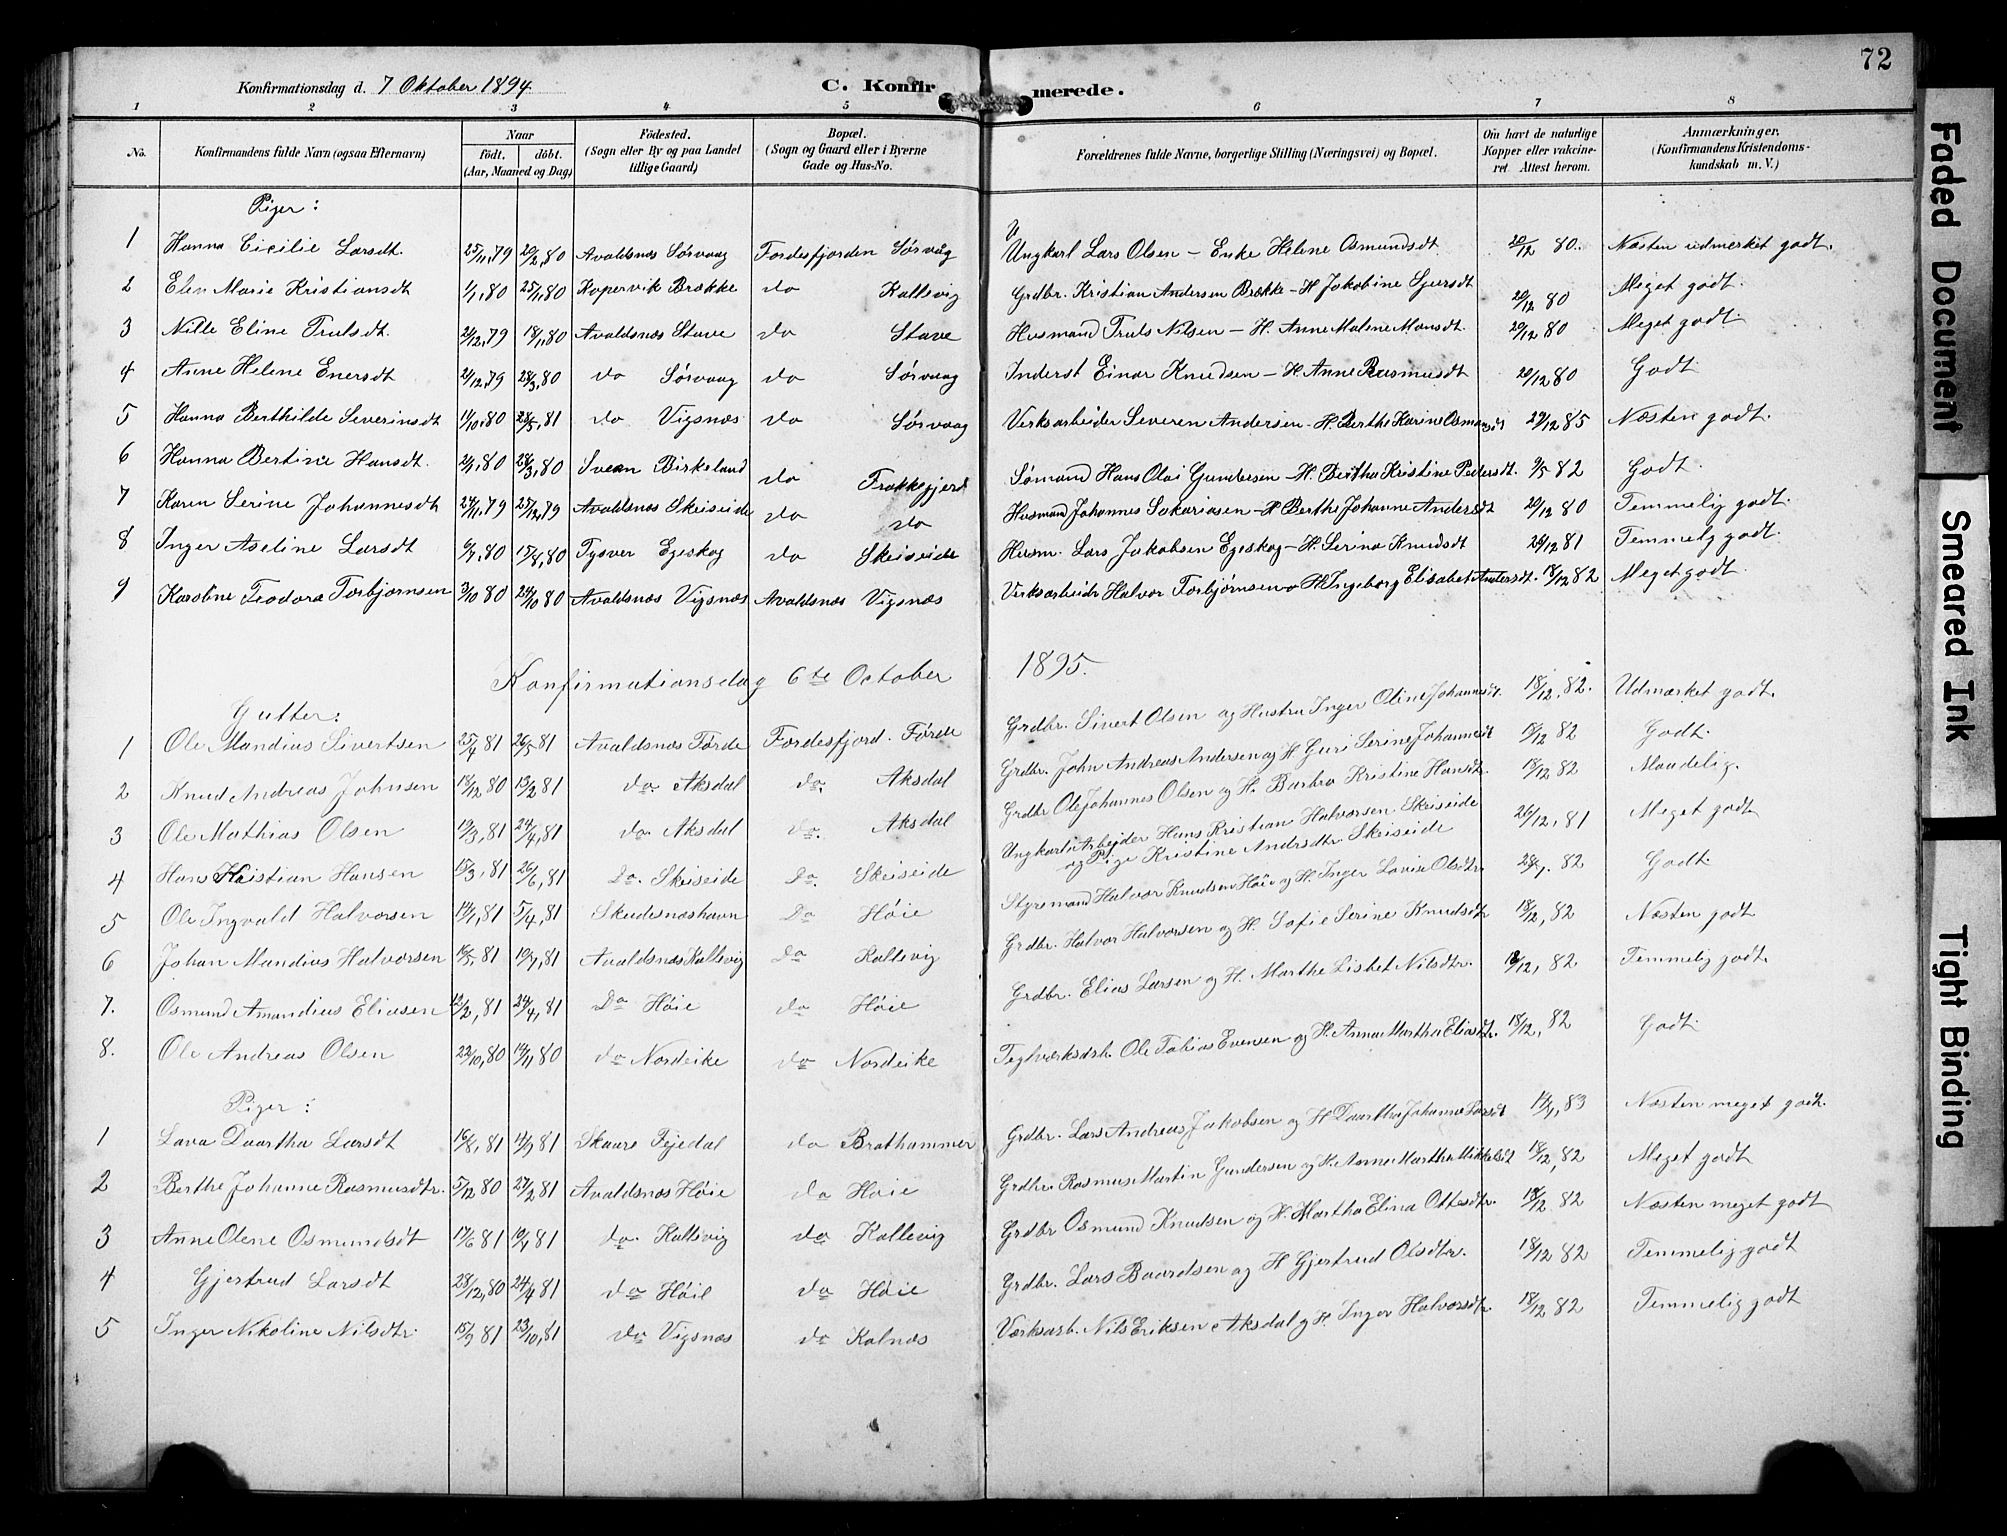 72
Konfirmationsdag d. 7 Oktober 1894
C. Konfirmerede.
1 2 3 4 5 6 7 8
No. Konfirmandens fulde Navn (ogsaa Efternavn) Naar født. døbt. (Aar, Maaned og Dag) Fødested. (Sogn eller By og paa Landet tillige Gaard) Bopæl. (Sogn og Gaard eller i Byerne Gade og Hus-No. Forældrenes fulde Navne, borgerlige Stilling (Næringsvei) og Bopæl. Om havt de naturlige Kopper eller vakcineret Attest herom. Anmærkninger. (Konfirmandens Kristendomskundskab m. V.)
Piger:
1 Hanna Cicilie Larsdt. 25/11,79 29/2,80 Avaldsnæs Sørvaag Fordesfjorden Sørvåg Ungkarl Lars Olsen – Enke Helene Osmundsdt 20/12 80. Næsten udmerket godt.
2 Elen Marie Kristiansdt 1/1,80 25/1,80 Kopervik Brække do Kallevig Grdbr. Kristian Andersen Brække – H Jakobine Sjursdt 20/12 80 Meget godt.
3 Nille Eline Trulsdt. 24/12,79 18/1,80 Avaldsnæs Stave do Stave Husmand Truls Nilsen – H. Anne Malene Monsdt. 20/12 80 Meget godt.
4 Anne Helene Enersdt 24/12,79 28/3,80 do Sørvaag do Sørvaag Inderst Einar Knudsen – H. Anne Rasmusdt 20/12 80 Godt
5 Hanna Berthilde Severinsdt 11/10,80 28/5,81 do Vigsnæs do Sørvaag Verksarbeider Severen Andersen – H. Berthe Karine Osmundsdt 29/12 85 Næsten godt.
6 Hanna Bertine Hansdt. 2/1,80 28/3,80 Sveen Birkeland do Frakkagjerd Sømand Hans Olai Gundersen – H. Bertha Kristine Pedersdt. 9/5 82 Godt.
7 Karen Serine Johannesdt 24/11,79 25/12,79 Avaldsnæs Skeiseide do do Husmand Johannes Sakariasen – H Berthe Johanne Andersdt 20/12 80 Temmelig godt.
8 Inger Aseline Larsdt 6/7,80 15/8,80 Tysver Egeskog do Skeiseide Husm. Lars Jakobsen Egeskog – H. Serina Knudsdt 26/12 81 Temmelg godt.
9 Karoline Teodora Torbjørnsen 3/10 80 24/10 80 Avaldsnæs Vigsnæs Avaldsnæs Vigsnæs Verksarbeidr Halvor Torbjørnsen o H Ingeborg Elisabet Andersdt. 18/12 82 Meget godt.
Konfirmationsdag 6te October 1895.
Gutter:
1 Ole Mandius Sivertsen 25/4 81 26/5 81 Avaldsnæs Førde Fordesfjord. Førde Grdbr. Sivert Olsen og Hustru Inger Oline Johannesdt. 18/12, 82. Udmærket godt.
2 Knud Andreas Johnsen 18/12 80 13/2 81 do. Aksdal do. Aksdal Grdbr. John Andreas Andersen og H Guri Serine Johannesdt 15/12 82 Godt.
3 Ole Mathias Olsen 19/3,81 24/4,81 do Aksdal do. Aksdal Grdbr Ole Johannes Olsen og H. Barbra Kristine Hansdtr. 18/12, 82 Maadelig.
4 Hans Kristian Hansen 15/3,81 26/6,81 Do. Skeiseide Do. Skeiseide Ungkarl Arbejder Hans Kristian Halvorsen Skeiseide 26/12, 81 Meget godt
og Pige Kristine Andrsdtr. Skeiseide
5 Ole Ingvald Halvorsen 14/1,81 5/4,81 Skudesnæshavn Do Høie Styrmand Halvor Knudsen Høie og H. Inger Lovise Olsdtr. 28/1. 82 Godt.
6 Johan Mandius Halvorsen 16/5,81 19/7,81 Avaldsnæs Kallevig Do Kallevig Grdbr. Halvor Halvorsen og H. Sofie Serine Knudsdtr 18/12, 82 Næsten godt
7. Osmund Amandius Eliasen 12/2,81 24/4,81 Do Høie do Høie Grdbr. Elias Larsen og H. Marthe Lisbet Nilsdtr. 18/12, 82 Temmelig godt.
8. Ole Andreas Olsen 22/10,80 14/11,80 do Nordeike do Nordeike Teglværksarb. Ole Tobias Evensen og H. Anna Martha Eliasdtr. 18/12, 82 Godt.
Piger:
1 Lava Daartha Larsdt 16/8,81 14/9 81 Skaare Tejedal do Brathammer Grdbr. Lars Andreas Jakobsen og H Daartha Johanna Larsdt 14/1, 83 Næsten meget godt.
2 Berthe Johanne Rasmusdtr. 5/12 80 27/2 81 Avaldsnæs Høie do Høie Grdbr. Rasmus Martin Gundersen og H. Anna Martha Mikkelsdt 18/12, 82 Meget godt
3 Anne Olene Osmundsdt 17/6 81 19/7 81 do. Kallevig do Kallevig Grdbr Osmund Knudsen og H. Martha Elina Ottesdtr. 18/12 82 Næsten meget godt
4 Gjertrud Larsdt 28/12,80 24/4 81 do Høie do Høie Grdbr. Lars Baardsen og H Gjertrud Olsdtr. 18/12 82 Temmelig godt
5 Inger Nikoline Nilsdtr. 15/9 81 23/10,81 do Vigsnæs do Kalnæs Værksarb. Nils Eriksen Aksdal og H. Inger Halvorsdtr. 18/12 82 Temmelig godt
Faded Document
Smeared Ink
Tight Binding